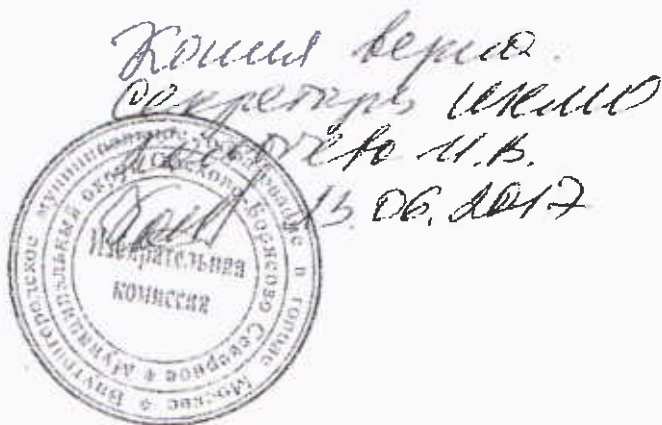 Копия верна
Секретарь ИКМО
И.В.
13.06.2017
Внутригородское муниципальное образование в городе Москве
Муниципальный округ Орехово-Борисово Северное
Избирательная
комиссия